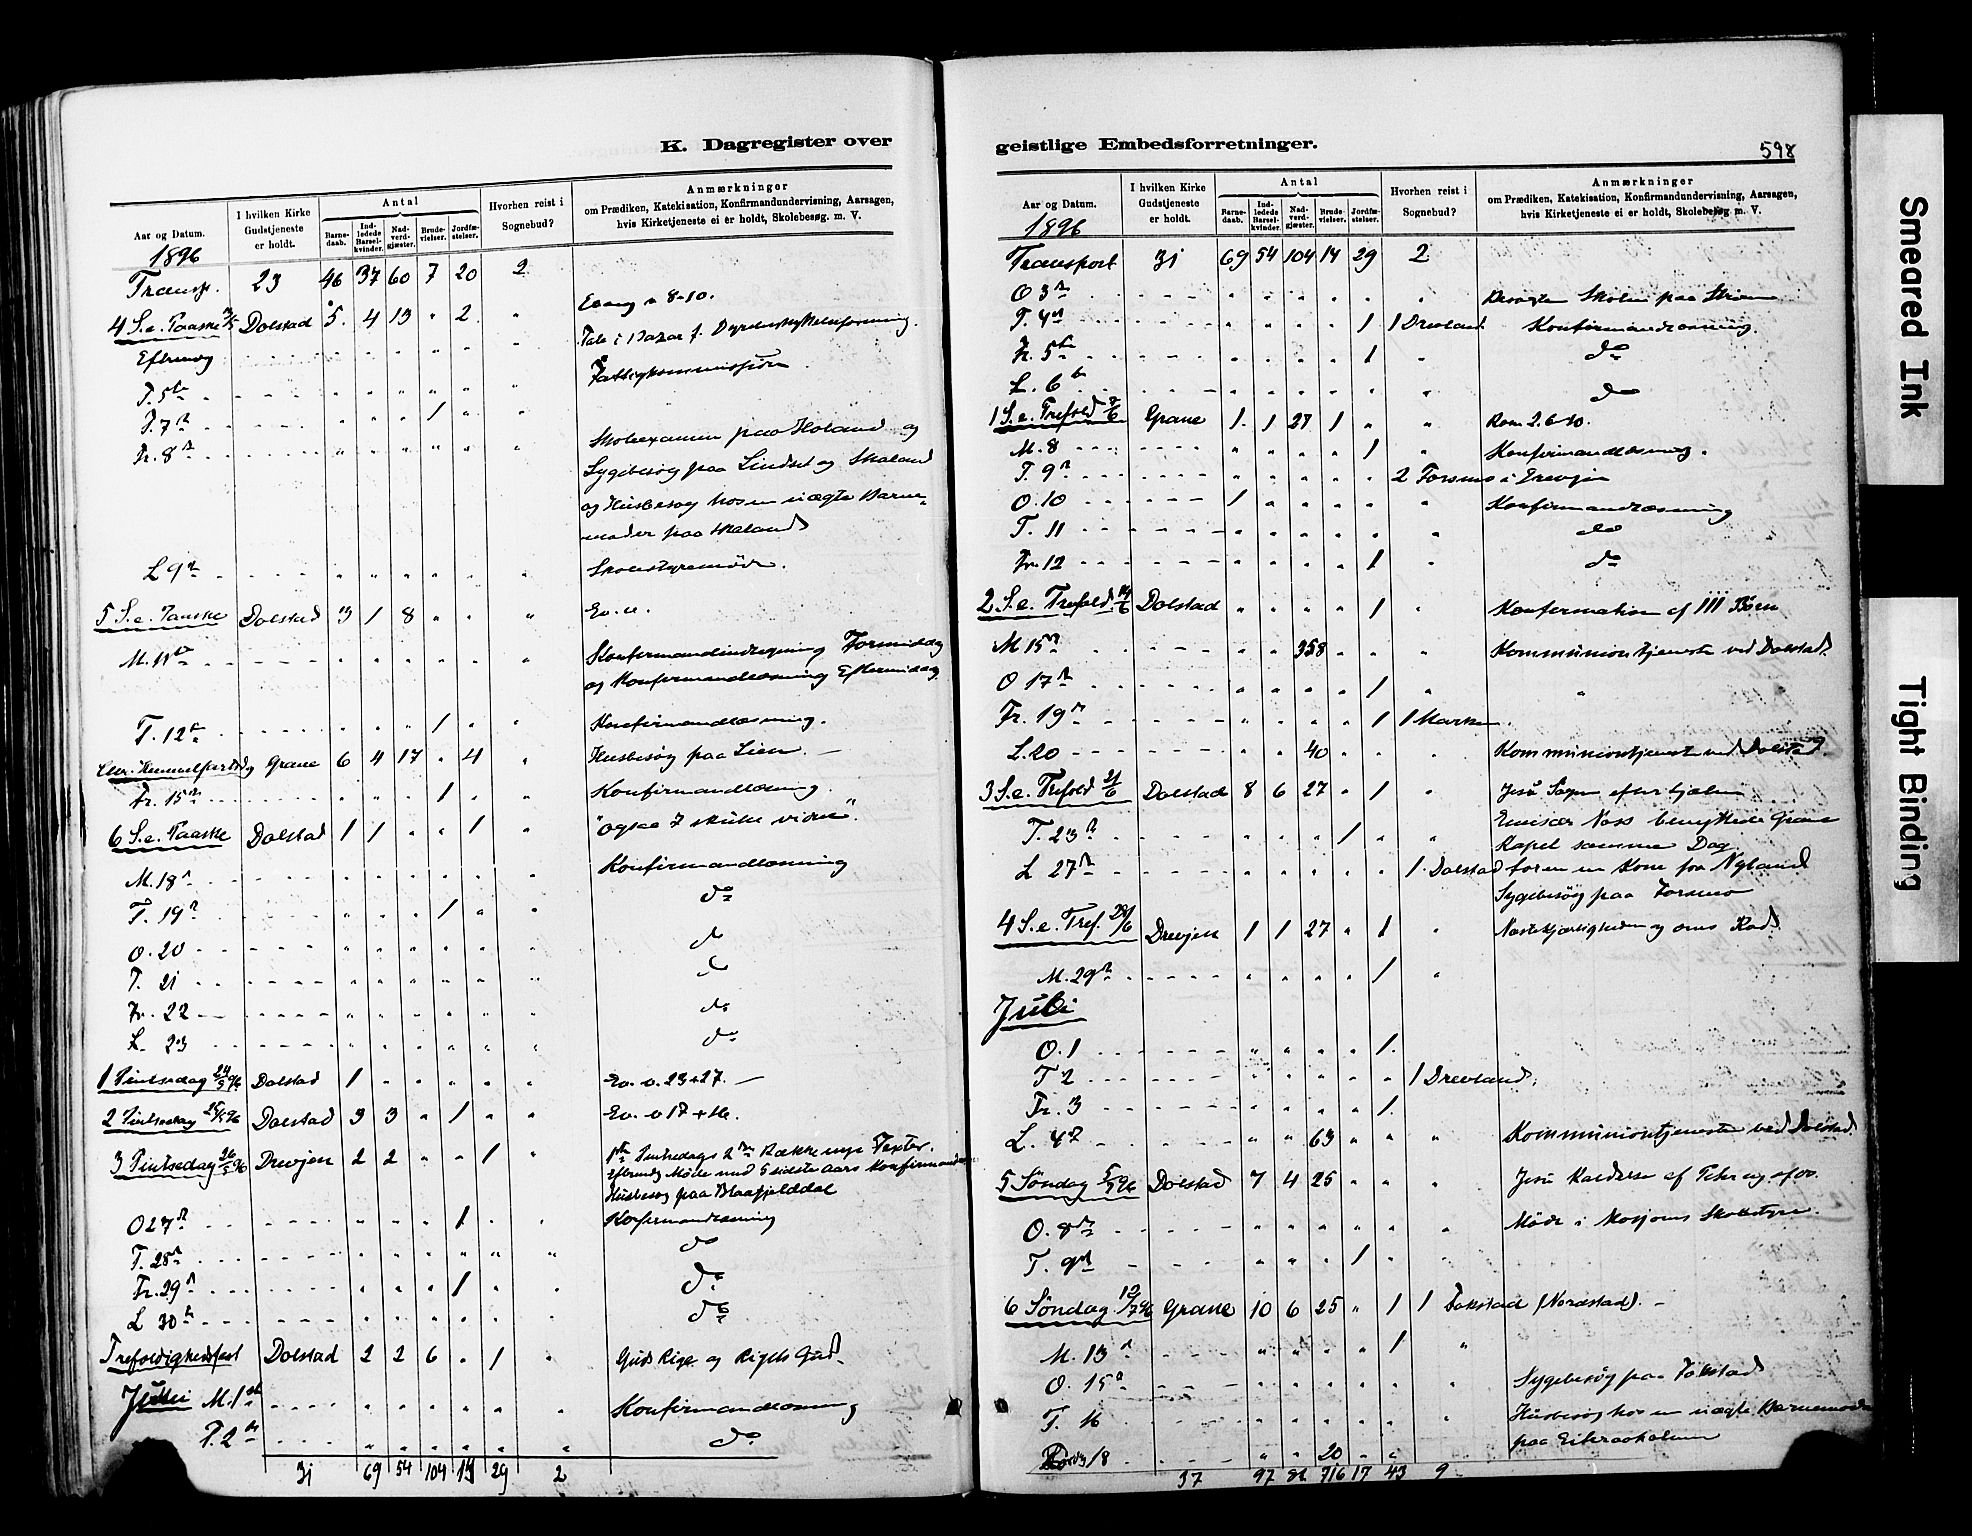 K. Dagregister over
Aar og Datum.
I hvilken Kirke Gudstjeneste er holdt.
Antal
Barne-daab.
Ind-ledede Barsel-kvinder.
Nad-verd-gjæster.
Brude-vielser.
Jordfæ-stelser.
Hvorhen reist i Sognebud?
Anmærkninger
om Prædiken, Katekisation, Konfirmandundervisning, Aarsagen,
hvis Kirketjeneste ei er holdt, Skolebesøg. m. V.
1896
Transp. 23 46 37 60 7 20 2
4 S. e. Paaske 3/5 Dolstad 5 4 13 " 2 " Evang. 8-10.
Tale i Bazar f. Dyrebeskyttelsesforening.
T. 5te Fattigkommission
T. 7de 1
Fr. 8de Skoleexamen paa Holand og
Sygebesøg paa Lindset og Skaland
og Husbesøg hos en uægte Barne-
moder paa Skaland
L 9de Skolestyremöde.
5 S. e. Paaske Dolstad 3 1 8 " " " Ev. v.
M. 11te Konfirmandindtegning Formiddag
og Konfirmandlæsning Eftermiddag
T. 12te 1 Konfirmandlæsning.
Chr. Himmelfartsdag Grane 6 4 17 " 4 " Husbesøg paa Lien.
Fr. 15de 1 Konfirmandlæsning.
6 S. e. Paaske Dolstad 1 1 " " 1 " "Ogsaa I skulle vidne".
M. 18de Konfirmandlæsning
T. 19de 1 do
O. 20 do
T. 21 do
Fr. 22 do
L. 23 do
1 Pintsedag 24/5 96 Dolstad 1 " " " " " Ev. v. 23+27.
2 Pintsedag 25/5 96 Dolstad 3 3 " 1 " " Ev. v 17+16.
3 Pintsedag 26/5 96 Drevjen 2 2 " " 1 " 1ste Pintsedags 2den Række nye Texter.
Efterm. Møde med 5 sidste Aars Konfirmander
Husbesøg paa Blaafjelddal
O 27de 1 Konfirmandlæsning
T. 28de do
Fr. 29de 1 do
L 30te do
Trefoldighedsfest Dolstad 2 2 6 " 1 " Guds Rige og Rigets Gud.
Juni M. 1ste Konfirmandlæsning
T. 2den do
31 69 54 104 14 29 2
geistlige Embedsforretninger.
598
Aar og Datum.
I hvilken Kirke Gudstjeneste er holdt.
Antal
Barne-daab.
Ind-ledede Barsel-kvinder.
Nad-verd-gjæster.
Brude-vielser.
Jordfæ-stelser.
Hvorhen reist i Sognebud?
Anmærkninger
om Prædiken, Katekisation, Konfirmandundervisning, Aarsagen,
hvis Kirketjeneste ei er holdt, Skolebesøg. m. V.
1896
Transport 31 69 54 104 14 29 2
O 3de Besøgte Skolen paa
T. 4de 1 1 Drevland Konfirmandlæsning.
Fr. 5te 1 do
L. 6te do
1 S. e. Trefold 7/6 Grane 1 1 27 1 " " Rom. 2.6-10.
M. 8 1 Konfirmandlæsning.
T. 9de 2 Forsmo i Drevjen
O. 10 1 Konfirmandlæsning
T. 11 do
Fr. 12 1 do
2 S. e. Trefold. 14/6 Dolstad " " " " 1 " Konfirmation af 111 Børn
M 15de 358 Kommuniontjeneste ved Dolstad.
O 17de 1
Fr. 19de 1 1 Marken.
L. 20 40 Kommuniontjeneste ved Dolstad
3 S. e. Trefold 21/6 Dolstad 8 6 27 " 1 " Jesu Sogn efter hjælen
T. 23de 1 Emissær Næss benyttede Grane
Kapel samme Dag
L 27de 1 Dolstad for en en Kone fra Nyland
Sygebesøg paa Forsmo
4 S. e. Tref. 28/6 Drevjen 1 1 27 " 1 " Næstekjærligheden og dens Kød.
M. 29de 1
Juli
O. 1 1
T 2 1 Drevland.
Fr. 3 1
L. 4de 63 Kommuniontjeneste ved Dolstad
5 Søndag 5/7 96 Dolstad 7 4 25 " " Jesu Kaldelse af Peter og
O. 8de Möde i Mosjøens Skolestyre.
T. 9de 1
6 Søndag 12/7 96 Grane 10 6 25 " 1 1 Fokstad (Norastad).
M. 13de 1
O. 15de Sygebesøg paa Fokstad
T. 16 Husbesøg hos en uægte Barnemoder
paa Eiteraakalmen
18 20
37 97 81 716 17 43 9
Smeared Ink
Tight Binding